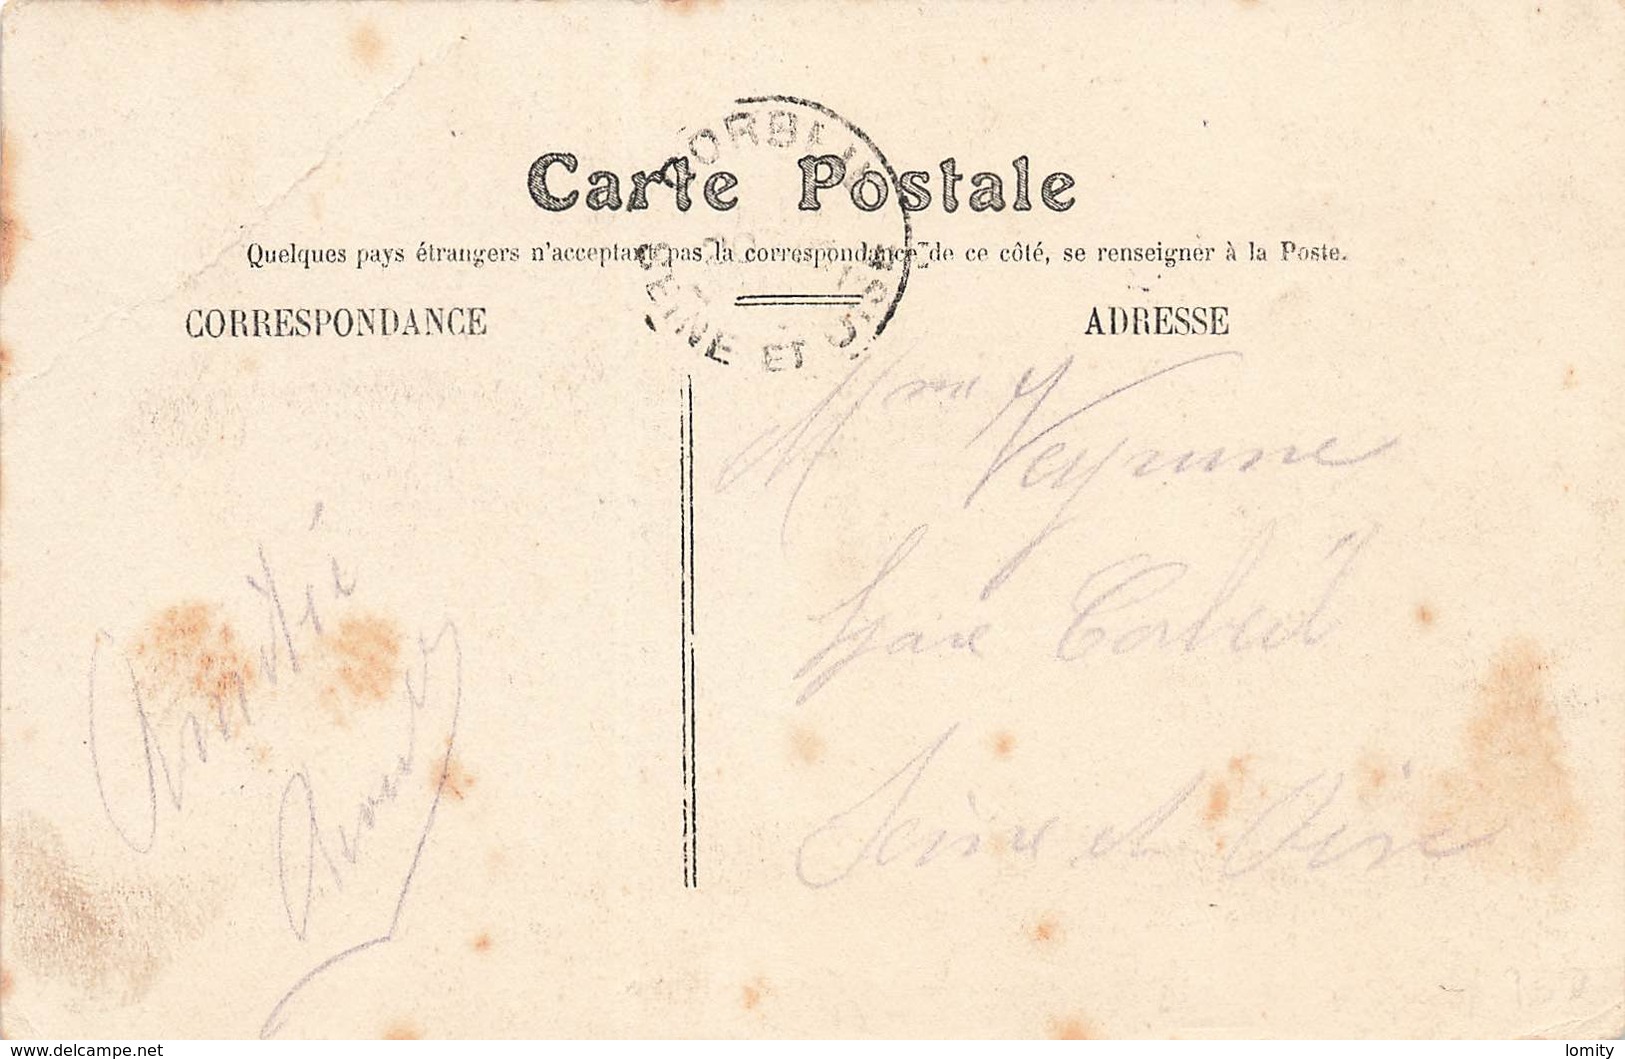 CORBEIL
Carte Postale
Quelques pays étrangers n'acceptant pas la correspondance de ce côté, se renseigner à la Poste.
SEINE ET OISE
CORRESPONDANCE
ADRESSE
Mme Veyrune
Gare Corbeil
Seine et Oise
Amitié
www.delcampe.net
lomity